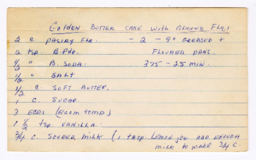 Golden Butter Cake with Almond Flav.
2 c Pastry Flr. - 2 - 9" Greased +
2 tsp B. Pdr. Floured pans.
1/2 " B. Soda. 375 - 25 min.
1/2 " Salt
1/2 c Soft Butter.
1 c. Sugar
3 Eggs (Room temp)
1 1/2 tsp Vanilla
3/4 c Soured milk (1 tsp lemon you add enough
milk to make 3/4 c.